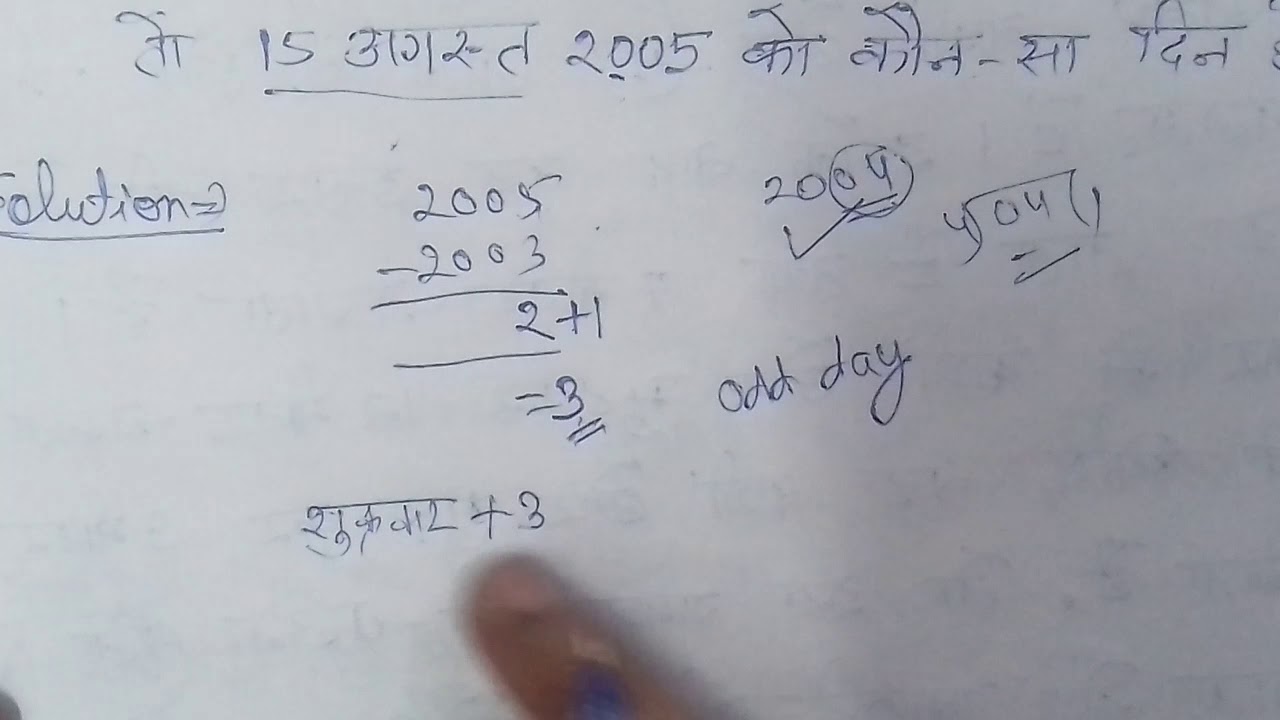 तो 15 अगस्त 2005 को कौन-सा दिन
Solution⇒
2005
-2003
2+1
=3
2004
4)04(1
odd day
शुक्रवार + 3